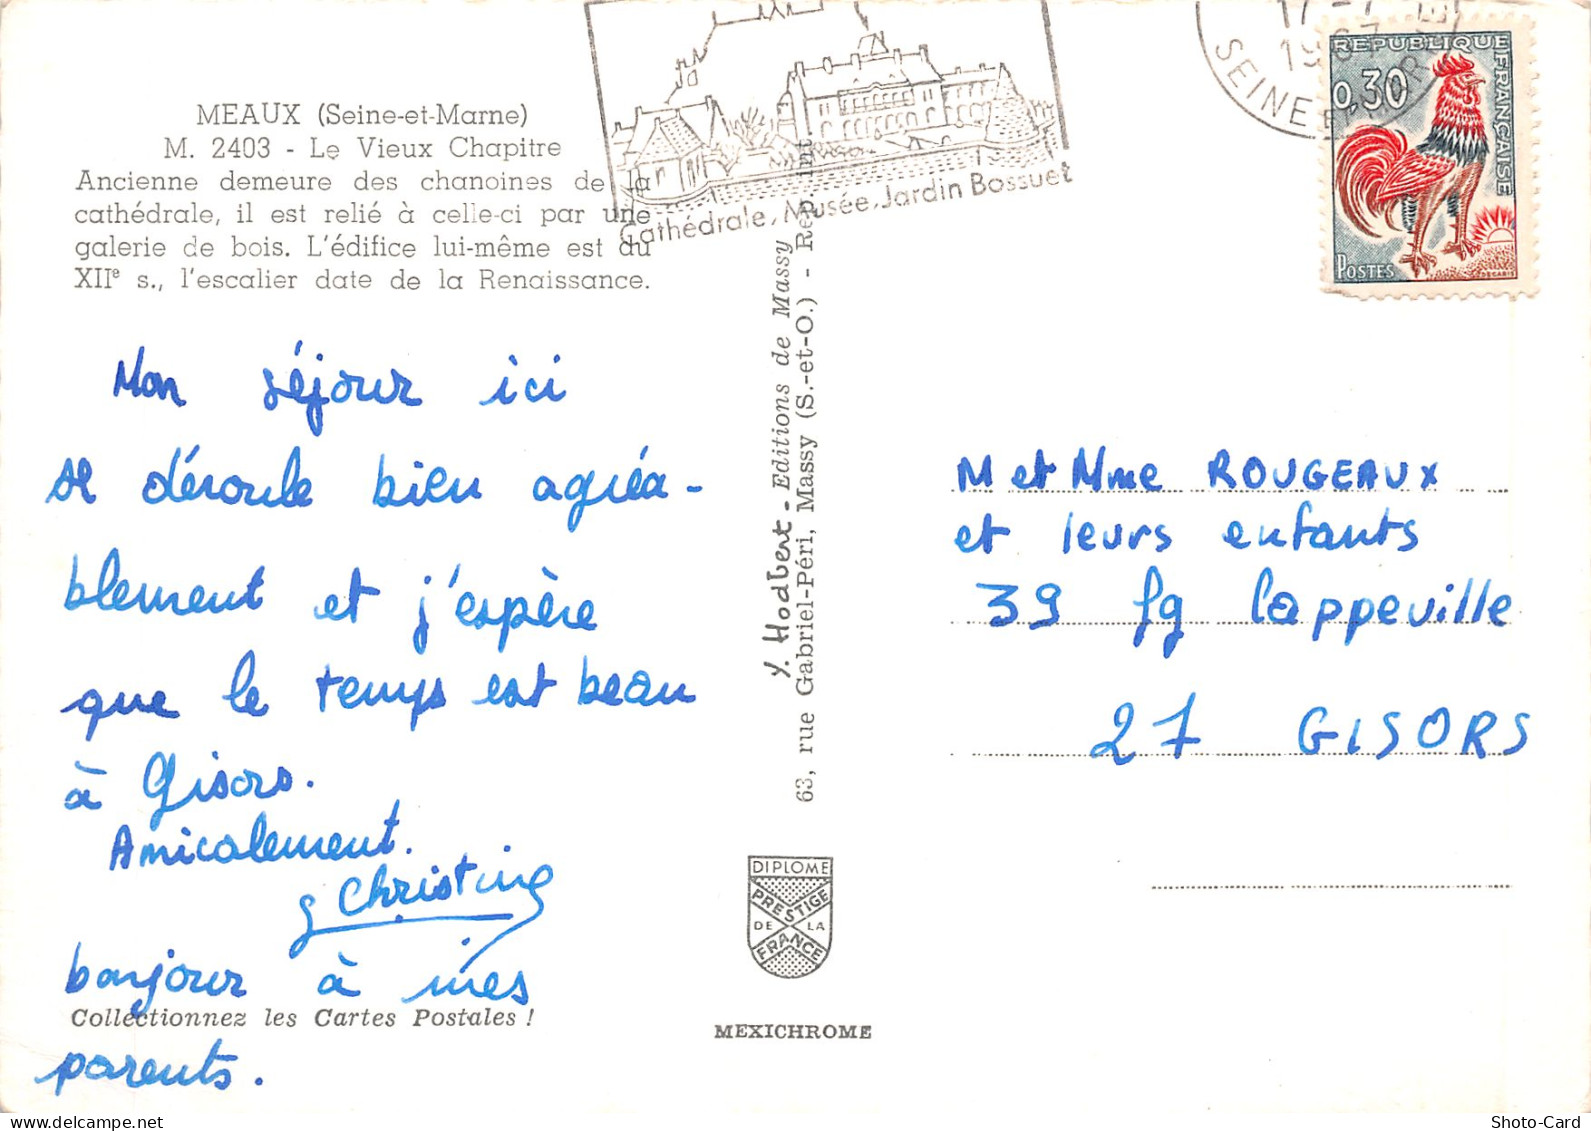 MEAUX (Seine-et-Marne)
M. 2403 - Le Vieux Chapitre
Ancienne demeure des chanoines de la
cathédrale, il est relié à celle-ci par une
galerie de bois. L'édifice lui-même est du
XIIe s., l'escalier date de la Renaissance.
Cathédrale, Musée, Jardin Bossuet
17-7
1967
SEINE ET
REPUBLIQUE
FRANÇAISE
0,30
POSTES
Mon séjour ici
se déroule bien agréa-
blement et j'espère
que le temps est beau
à Gisors.
Amicalement.
Christine
bonjour à mes
parents.
Collectionnez les Cartes Postales !
Y. Hodbert - Editions de Massy
63, rue Gabriel-Péri, Massy (S.-et-O.) - Rep. int
DIPLOME
PRESTIGE
DE LA
FRANCE
MEXICHROME
M et Mme ROUGEAUX
et leurs enfants
39 fg Cappeville
27 GISORS
Shoto-Card